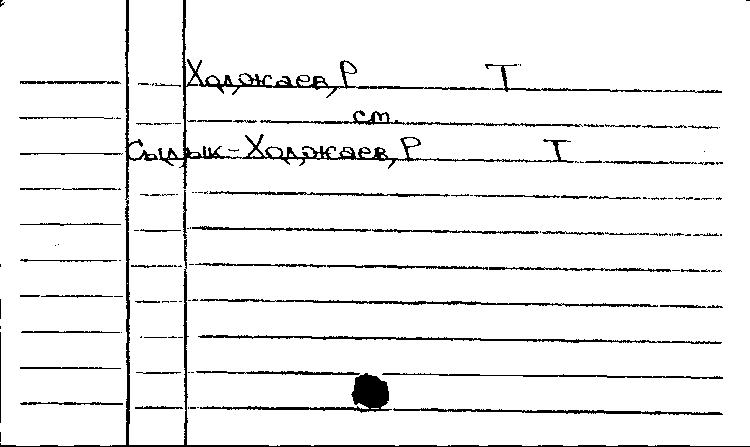 Ходжаев, Р Т
см.
Сыдык-Ходжаев, Р Т